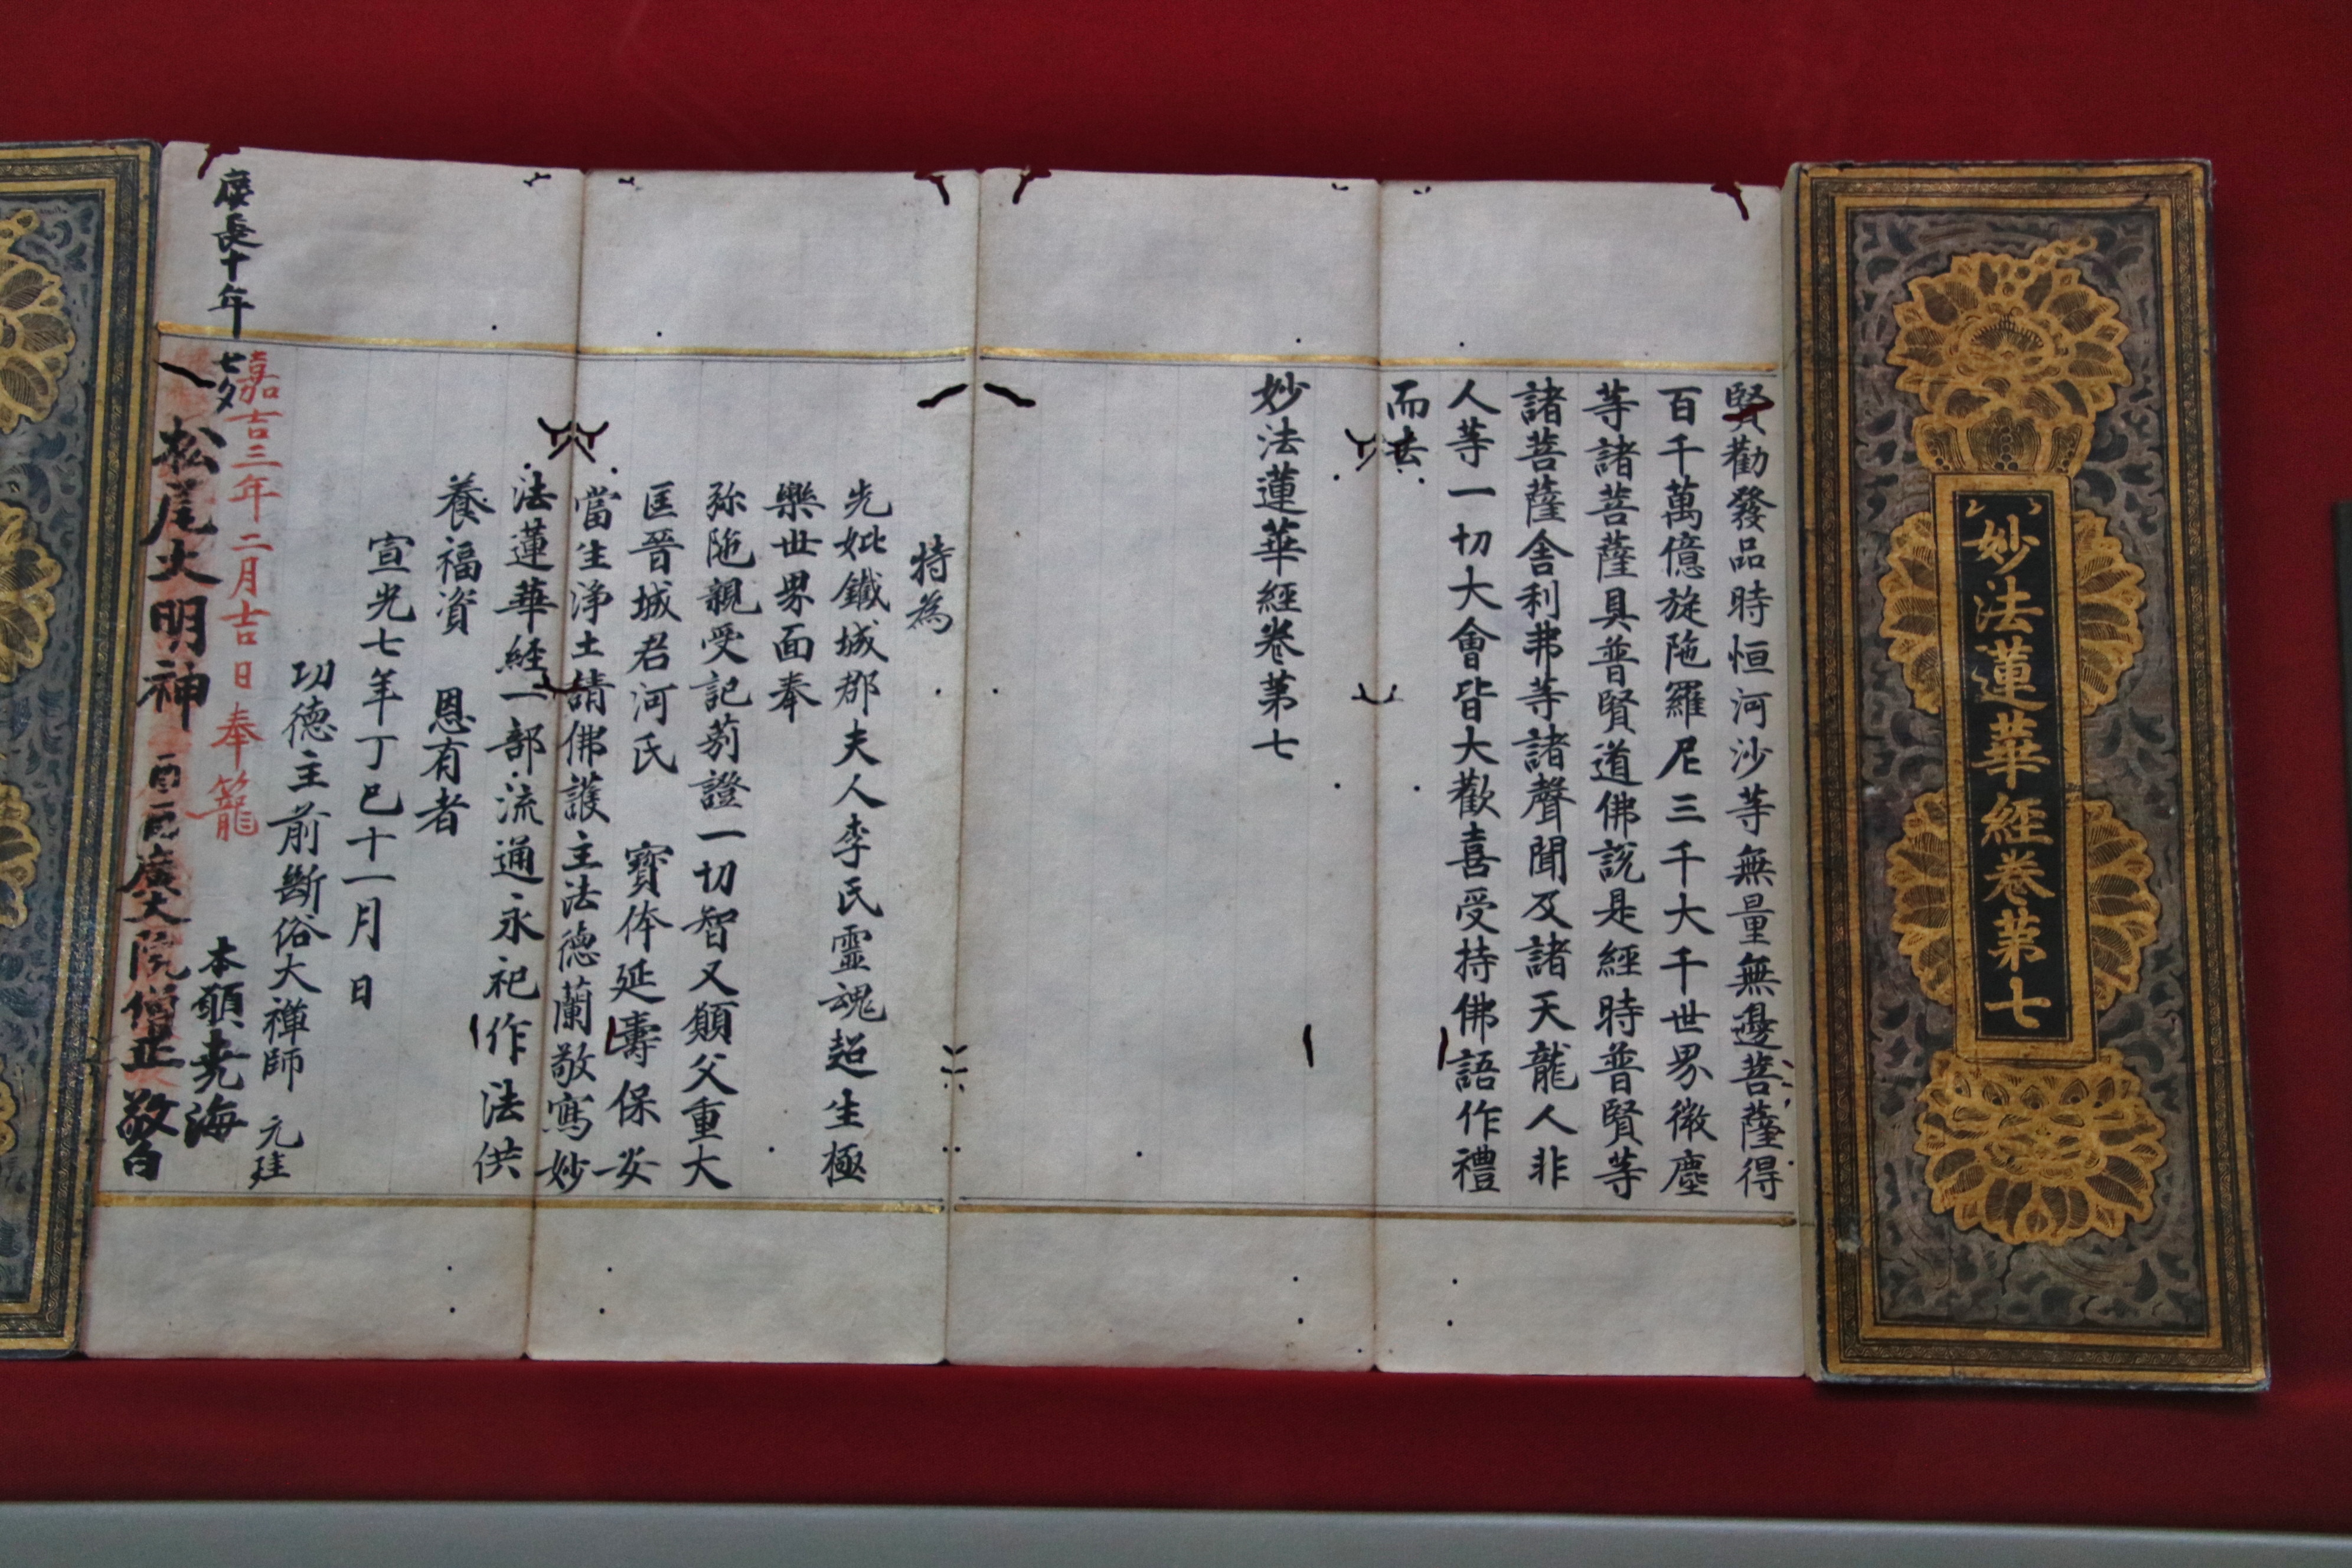 妙法蓮華經卷第七
賢勸發品時恒河沙等無量無邊菩薩得
百千萬億旋陁羅尼三千大千世界微塵
等諸菩薩具普賢道佛說是經時普賢等
諸菩薩舍利弗等諸聲聞及諸天龍人非
人等一切大會皆大歡喜受持佛語作禮
而去
妙法蓮華經卷第七
特為
先妣鐵城郡夫人李氏靈魂超生極
樂世界面奉
弥陁親受記莂證一切智又願父重大
匡晉城君河氏 寶体延壽保安
當生淨土請佛護主法德蘭敬寫妙
法蓮華経一部流通永祀作法供
養福資 恩有者
宣光七年丁巳十一月 日
功德主前斷俗大禪師 元珪
嘉吉三年二月吉日奉籠
本願尭海
慶長十年
七夕
松尾大明神
僧正敬白